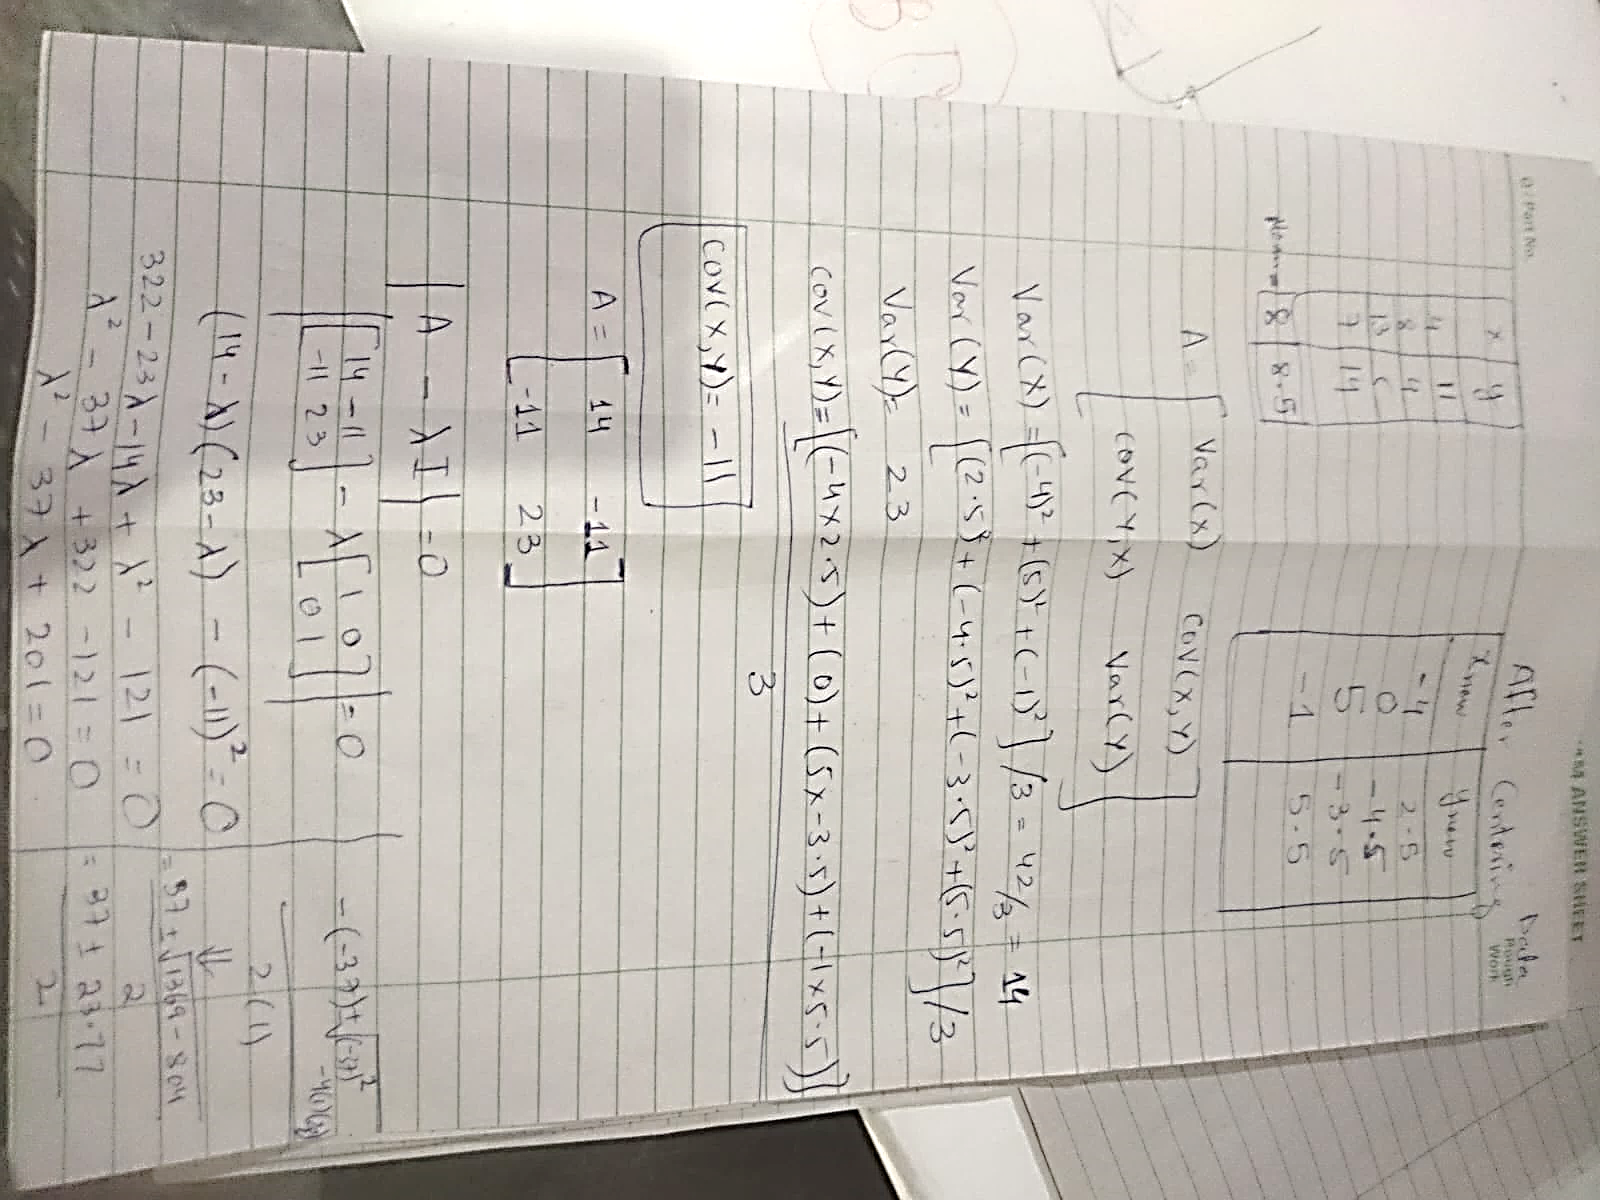 Q / Part No.
ANSWER SHEET
Rough Work
x y
4 11
8 4
13 5
7 14
Mean = 8 8.5
After Centering Data
xnew ynew
-4 2.5
0 -4.5
5 -3.5
-1 5.5
A = [ Var(x) cov(x,y)
cov(y,x) Var(y) ]
Var(x) = [(-4)² + (5)² + (-1)²] /3 = 42/3 = 14
Var(y) = [(2.5)² + (-4.5)² + (-3.5)² + (5.5)²] /3
Var(y) = 23
cov(x,y) = [(-4 x 2.5) + (0) + (5 x -3.5) + (-1 x 5.5)]
3
cov(x,y) = -11
A = [ 14 -11
-11 23 ]
| A - λI | = 0
| [ 14 -11
-11 23 ] - λ [ 1 0
0 1 ] | = 0
(14 - λ)(23 - λ) - (-11)² = 0
322 - 23λ - 14λ + λ² - 121 = 0
λ² - 37λ + 322 - 121 = 0
λ² - 37λ + 201 = 0
-(-37) ± √(-37)²
2(1)
⇓
= 37 ± √1369 - 804
2
= 37 ± 23.77
2